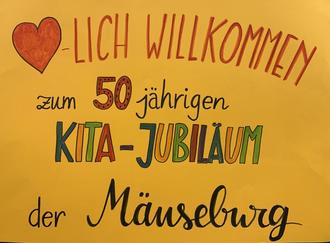 -LICH WILLKOMMEN
zum 50 jährigen
KITA-JUBILÄUM
der Mäuseburg